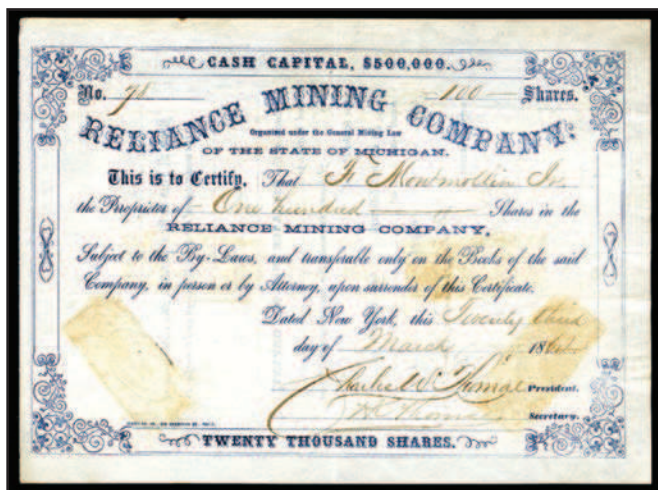 CASH CAPITAL, $500,000.
No. 98 100 Shares.
RELIANCE MINING COMPANY.
Organized under the General Mining Law
OF THE STATE OF MICHIGAN.
This is to Certify, That F. Montmollin Jr.
the Proprietor of One hundred Shares in the
RELIANCE MINING COMPANY,
Subject to the By-Laws, and transferable only on the Books of the said
Company, in person or by Attorney, upon surrender of this Certificate.
Dated New York, this Twenty third
day of March 186
Charles W. President.
Secretary.
TWENTY THOUSAND SHARES.